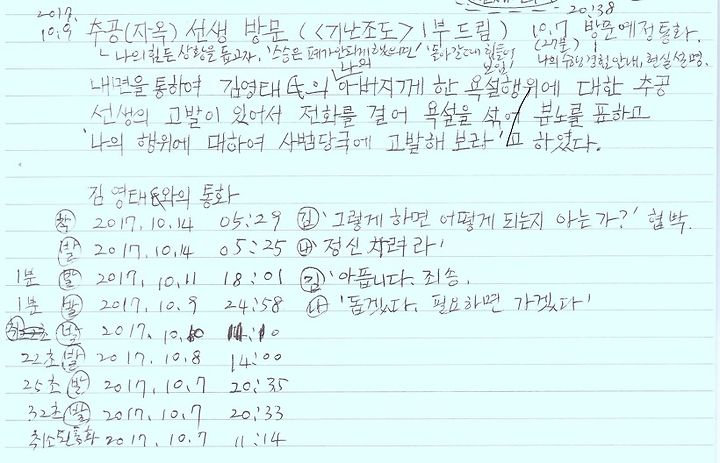 20:38
2017.
10.9 추공(자옥) 선생 방문 (<기난조도> 1부 드림) 10.7 방문예정통화.
나의 힘든 상황을 돕고자. '스승은 폐가 안되게 했으면!' '돌아갈 때 힘들어 보임' (27분) 나의 수련경험 안내, 현실 설명.
내면을 통하여 김영태 氏의 나의 아버지께 한 욕설행위에 대한 추공
선생의 고발이 있어서 전화를 걸어 욕설을 섞어 분노를 표하고
'나의 행위에 대하여 사법당국에 고발해 보라'고 하였다.
김영태氏와의 통화
착 2017.10.14 05:29 김 '그렇게 하면 어떻게 되는지 아는가?' 협박.
발 2017.10.14 05:25 나 '정신차려라'
1분 발 2017.10.11 18:01 김 '아픕니다. 죄송.
1분 발 2017.10.9 24:58 나 '돕겠다. 필요하면 가겠다'
발 2017.10.
22초 발 2017.10.8 14:00
25초 발 2017.10.7 20:35
32초 발 2017.10.7 20:33
취소된통화 2017.10.7 11:14